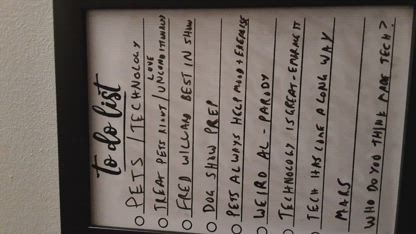 to do list
PETS / TECHNOLOGY
LOVE
TREAT PETS RIGHT / UNCONDITIONALLY
FRED WILLARD BEST IN SHOW
DOG SHOW PREP
PETS ALWAYS HELP MOOD + EXERCISE
WEIRD AL - PARODY
TECHNOLOGY IS GREAT - EMBRACE IT
TECH HAS COME A LONG WAY
MARS
WHO DO YOU THINK MADE TECH?